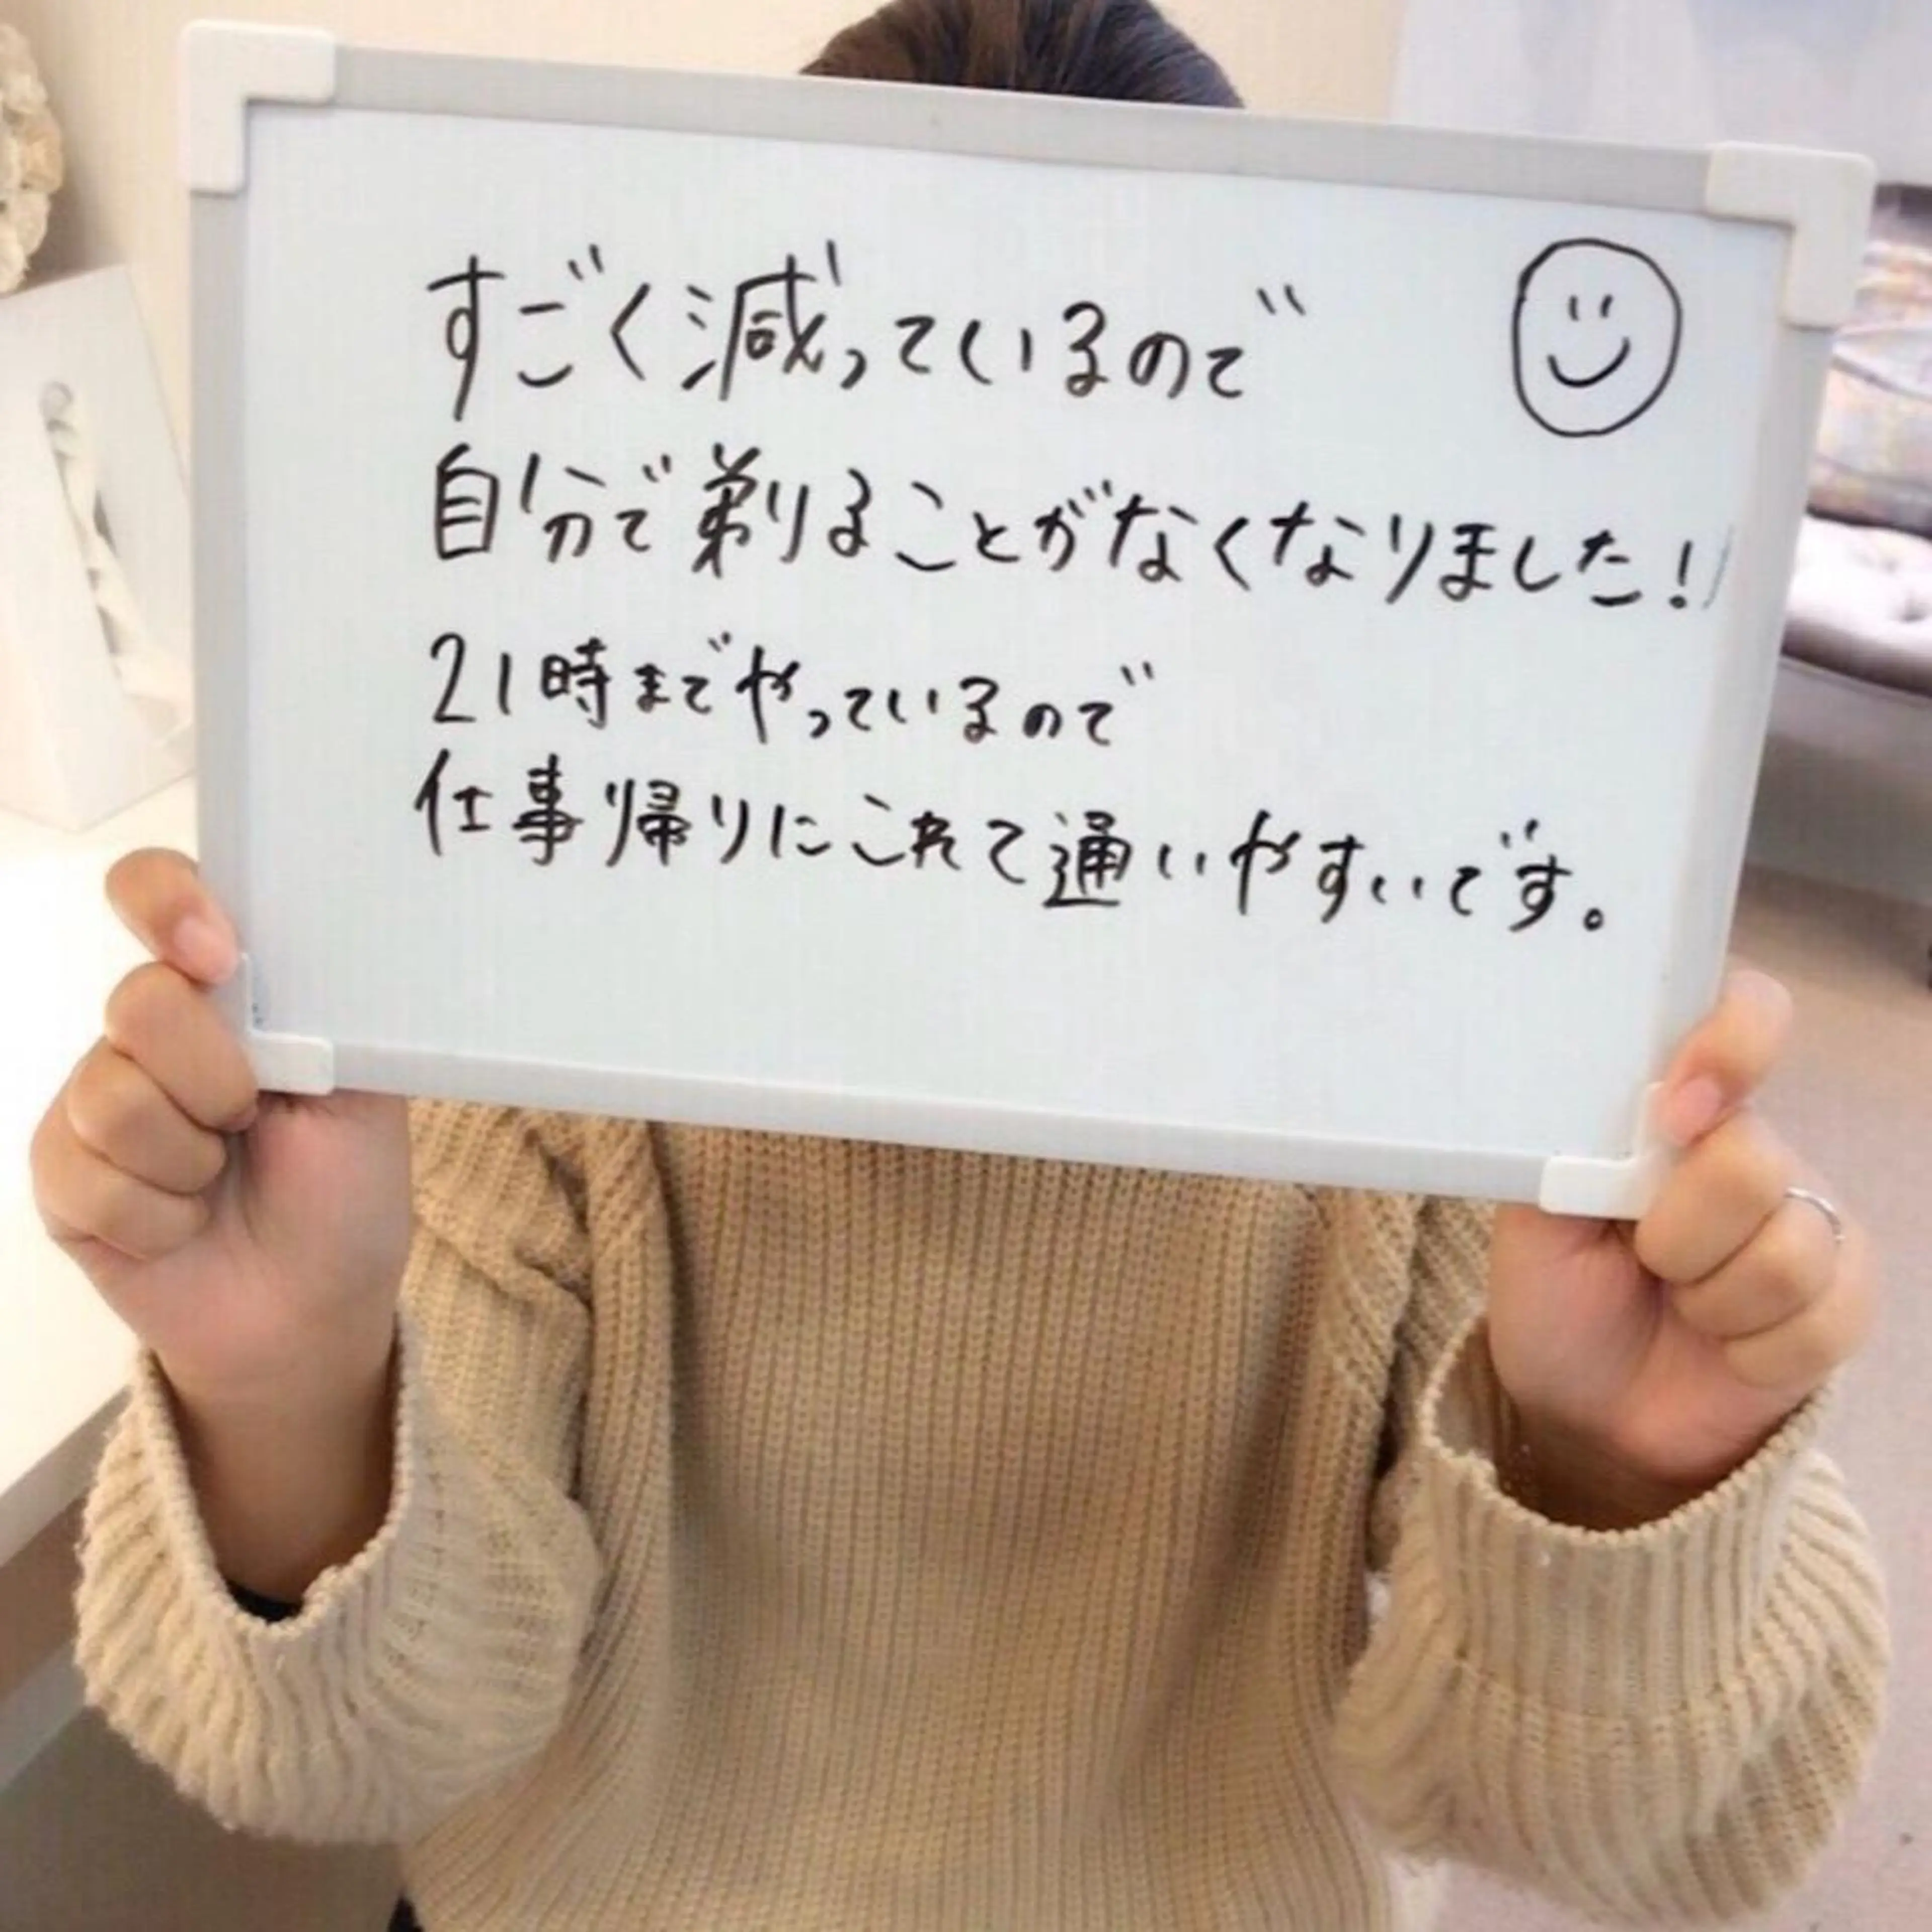 すごく減っているので
自分で剃ることがなくなりました!
21時までやっているので
仕事帰りにこれて通いやすいです。